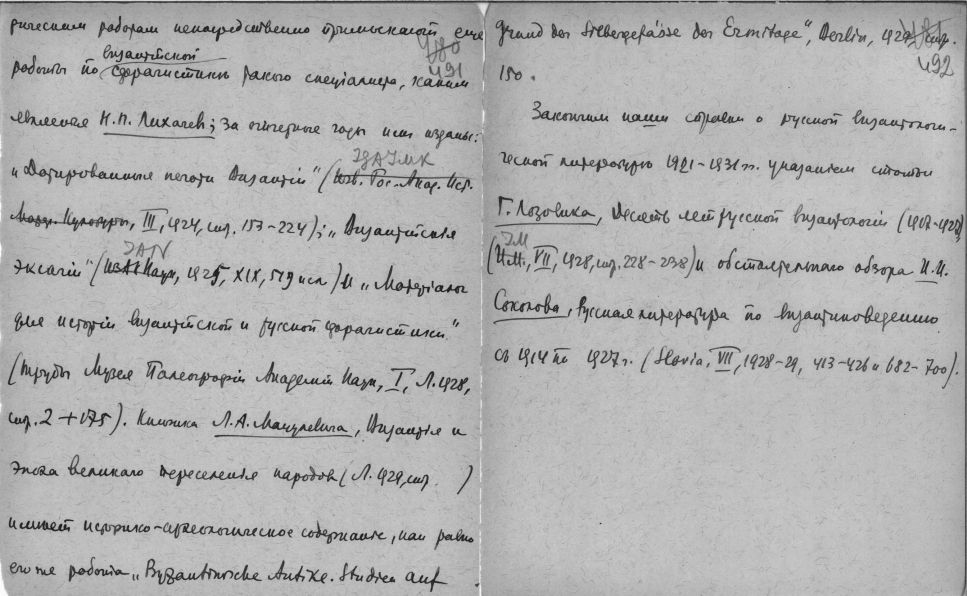 рическим работам непосредственно примыкают еще
480
491
византийской
работы по сфрагистике такого специалиста, каким
является Н.П. Лихачев; за отчетные годы ими изданы:
ИГАИМК
„Датированные печати Византии" (Изв. Рос. Акад. Ист.
Мат. Культуры, III, 1924, стр. 153-224); „Византийская
IAN
эксагия" (Наук, 1925, XIX, 519 исл.) и „Материалы
для истории византийской и русской сфрагистики"
(Труды Музея Палеографии Академии Наук, I, Л. 1928,
стр. 2+175). Книжка Л.А. Мацулевича, Византия и
эпоха великого переселения народов (Л. 1929, стр. )
имеет историко-археологическое содержание, как равно
его же работа „Byzantinische Antike. Studien auf
Grund der Silbergefässe der Ermitage", Berlin, 1929, стр.
481
492
150.
Закончим наши справки о русской византологи-
ческой литературе 1921-1931 гг. указанием статьи
Г. Лозовика, Десять лет русской византологии (1917-1927)
ИМ
(И.М., VII, 1928, стр. 228-238) и обстоятельного обзора И.И.
Соколова, Русская литература по византиноведению
съ 1914 по 1927 г. (Slavia, VII, 1928-29, 413-426 и 682-700).